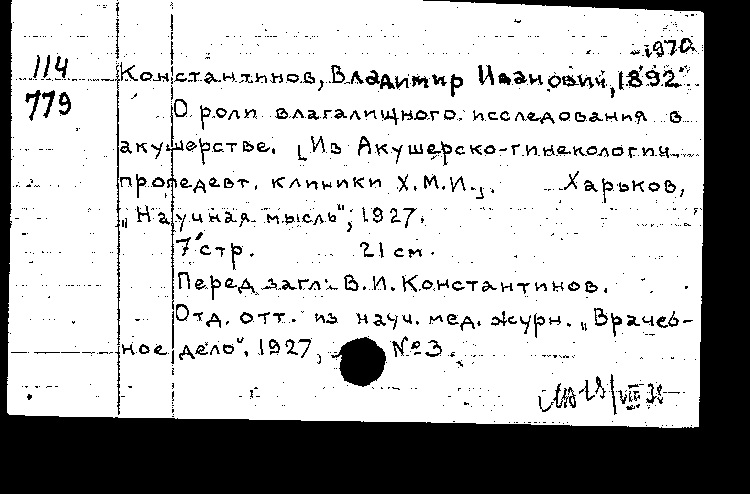 -1970
114
779
Константинов, Владимир Иванович, 1892
О роли влагалищного исследования в
акушерстве. [Из Акушерско-гинекологич.
пропедевт. клиники Х.М.И.]. Харьков,
„Научная мысль", 1927.
7 стр. 21 см.
Перед загл.: В.И. Константинов.
Отд. отт. из науч. мед. журн. „Врачеб-
ное дело", 1927, №3.
18/VIII 38